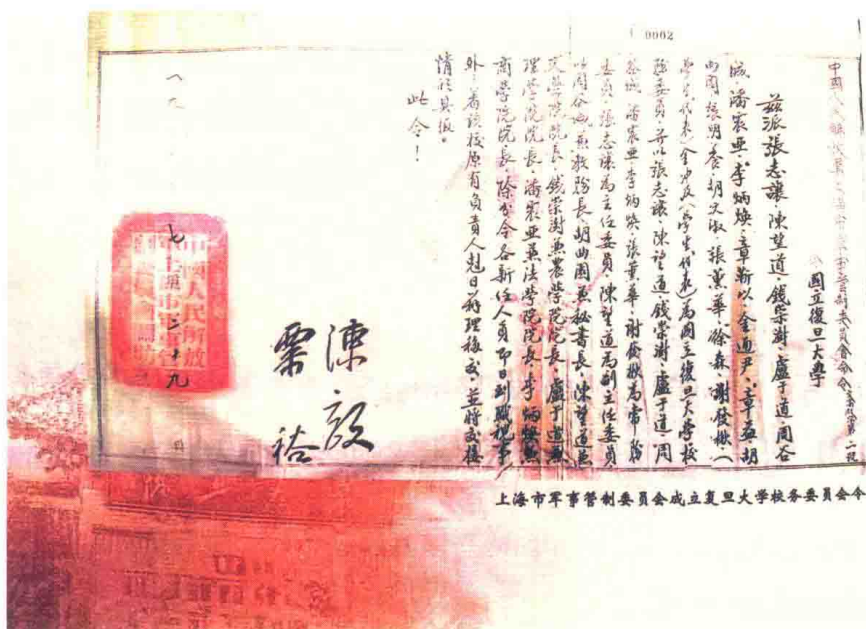 0002
國立復旦大學
茲派張志讓、陳望道、錢崇澍、盧于道、周谷
城、潘震亞、李炳煥、章靳以、金通尹、章益、胡
曲園、張明養、胡文淑、張薰華、徐森、謝發楸(
學生代表)為國立復旦大學校
務委員,並以張志讓、陳望道、錢崇澍、盧于道、周
谷城、潘震亞、李炳煥、張薰華、謝發楸為常務
委員,張志讓為主任委員,陳望道為副主任委員,
周谷城兼教務長,胡曲園兼秘書長,陳望道兼
文學院院長,錢崇澍兼農學院院長,盧于道兼
理學院院長,潘震亞兼法學院院長,李炳煥兼
商學院院長,除分令各新任人員即日到職視事
外,著該校原有負責人剋日辦理移交,並將交接
情形具報。
此令!
陳毅
粟裕
七 二十九 日
上海市军事管制委员会成立复旦大学校务委员会令